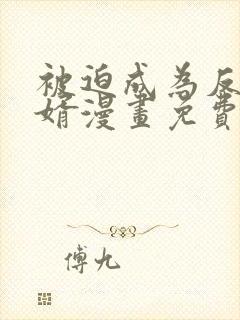 被迫成為反
婿漫畫免費
傅九